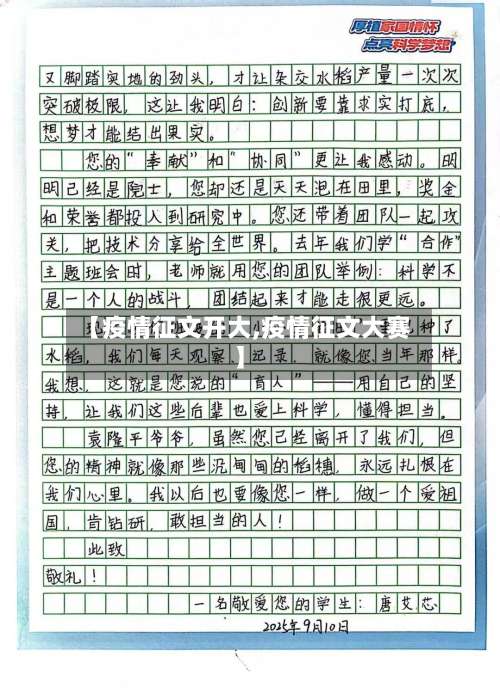 厚植家国情怀
点亮科学梦想
又脚踏实地的劲头，才让杂交水稻产量一次次
突破极限，这让我明白：创新要靠求实打底，
想梦才能结出果实。
您的“奉献”和“协同”更让我感动。明
明已经是院士，您却还是天天泡在田里，奖金
和荣誉都投入到研究中。您还带着团队一起攻
关，把技术分享给全世界。去年我们学“合作”
主题班会时，老师就用您的团队举例：科学不
是一个人的战斗，团结起来才能走很更远。
现
种了
【疫情征文开大,疫情征文大赛
】
水稻，我们每天观察、记录，就像您当年那样。
我想，这就是您说的“育人”——用自己的坚
持，让我们这些后辈也爱上科学，懂得担当。
袁隆平爷爷，虽然您已经离开了我们，但
您的精神就像那些沉甸甸的稻穗，永远扎根在
我们心里。我以后也要像您一样，做一个爱祖
国，肯钻研，敢担当的人！
此致
敬礼！
一名敬爱您的学生：唐艾芯
2025年9月10日